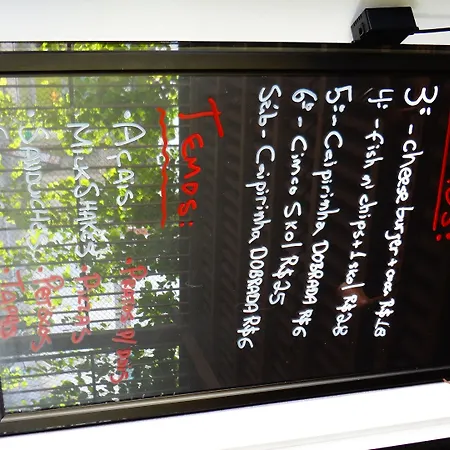 3ª:-cheese burger+coca R$18
4ª:-fish n' chips+1 skol R$28
5ª:-Caipirinha DOBRADA R$6
6ª:-Cinco Skol R$25
Sáb-Caipirinha DOBRADA R$6
TEMOS:
•AÇAÍS
•MILKSHAKES •PRATOS
•SANDUICHES •PETISCOS